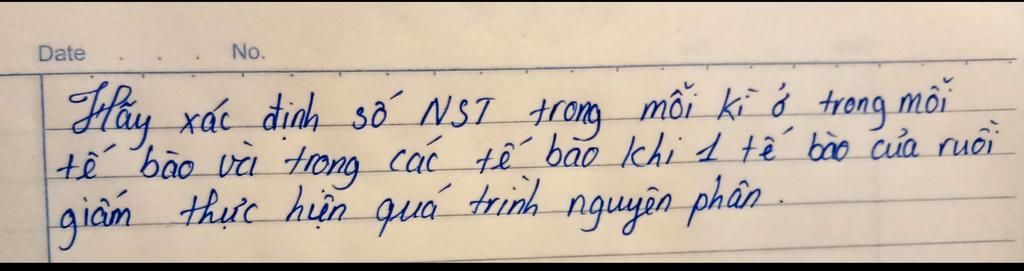 Date . . . . No.
Hãy xác định số NST trong mỗi kì ở trong mỗi
tế bào và trong các tế bào khi 1 tế bào của ruồi
giấm thực hiện quá trình nguyên phân.